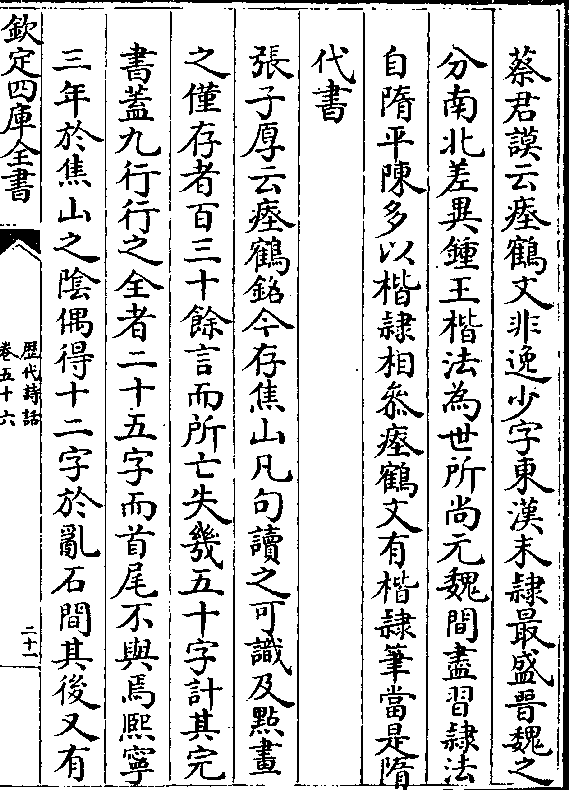 蔡君謨云瘞鶴文非逸少字東漢末隸最盛晉魏之
分南北差異鍾王楷法為世所尚元魏間盡習隸法
自隋平陳多以楷隸相叅瘞鶴文有楷隸筆當是隋
代書
張子厚云瘞鶴銘今存焦山凡句讀之可識及點畫
之僅存者百三十餘言而所亡失幾五十字計其完
書蓋九行行之全者二十五字而首尾不與焉熙寧
三年於焦山之陰偶得十二字於亂石間其後又有
欽定四庫全書
歴代詩話
卷五十六
二十一